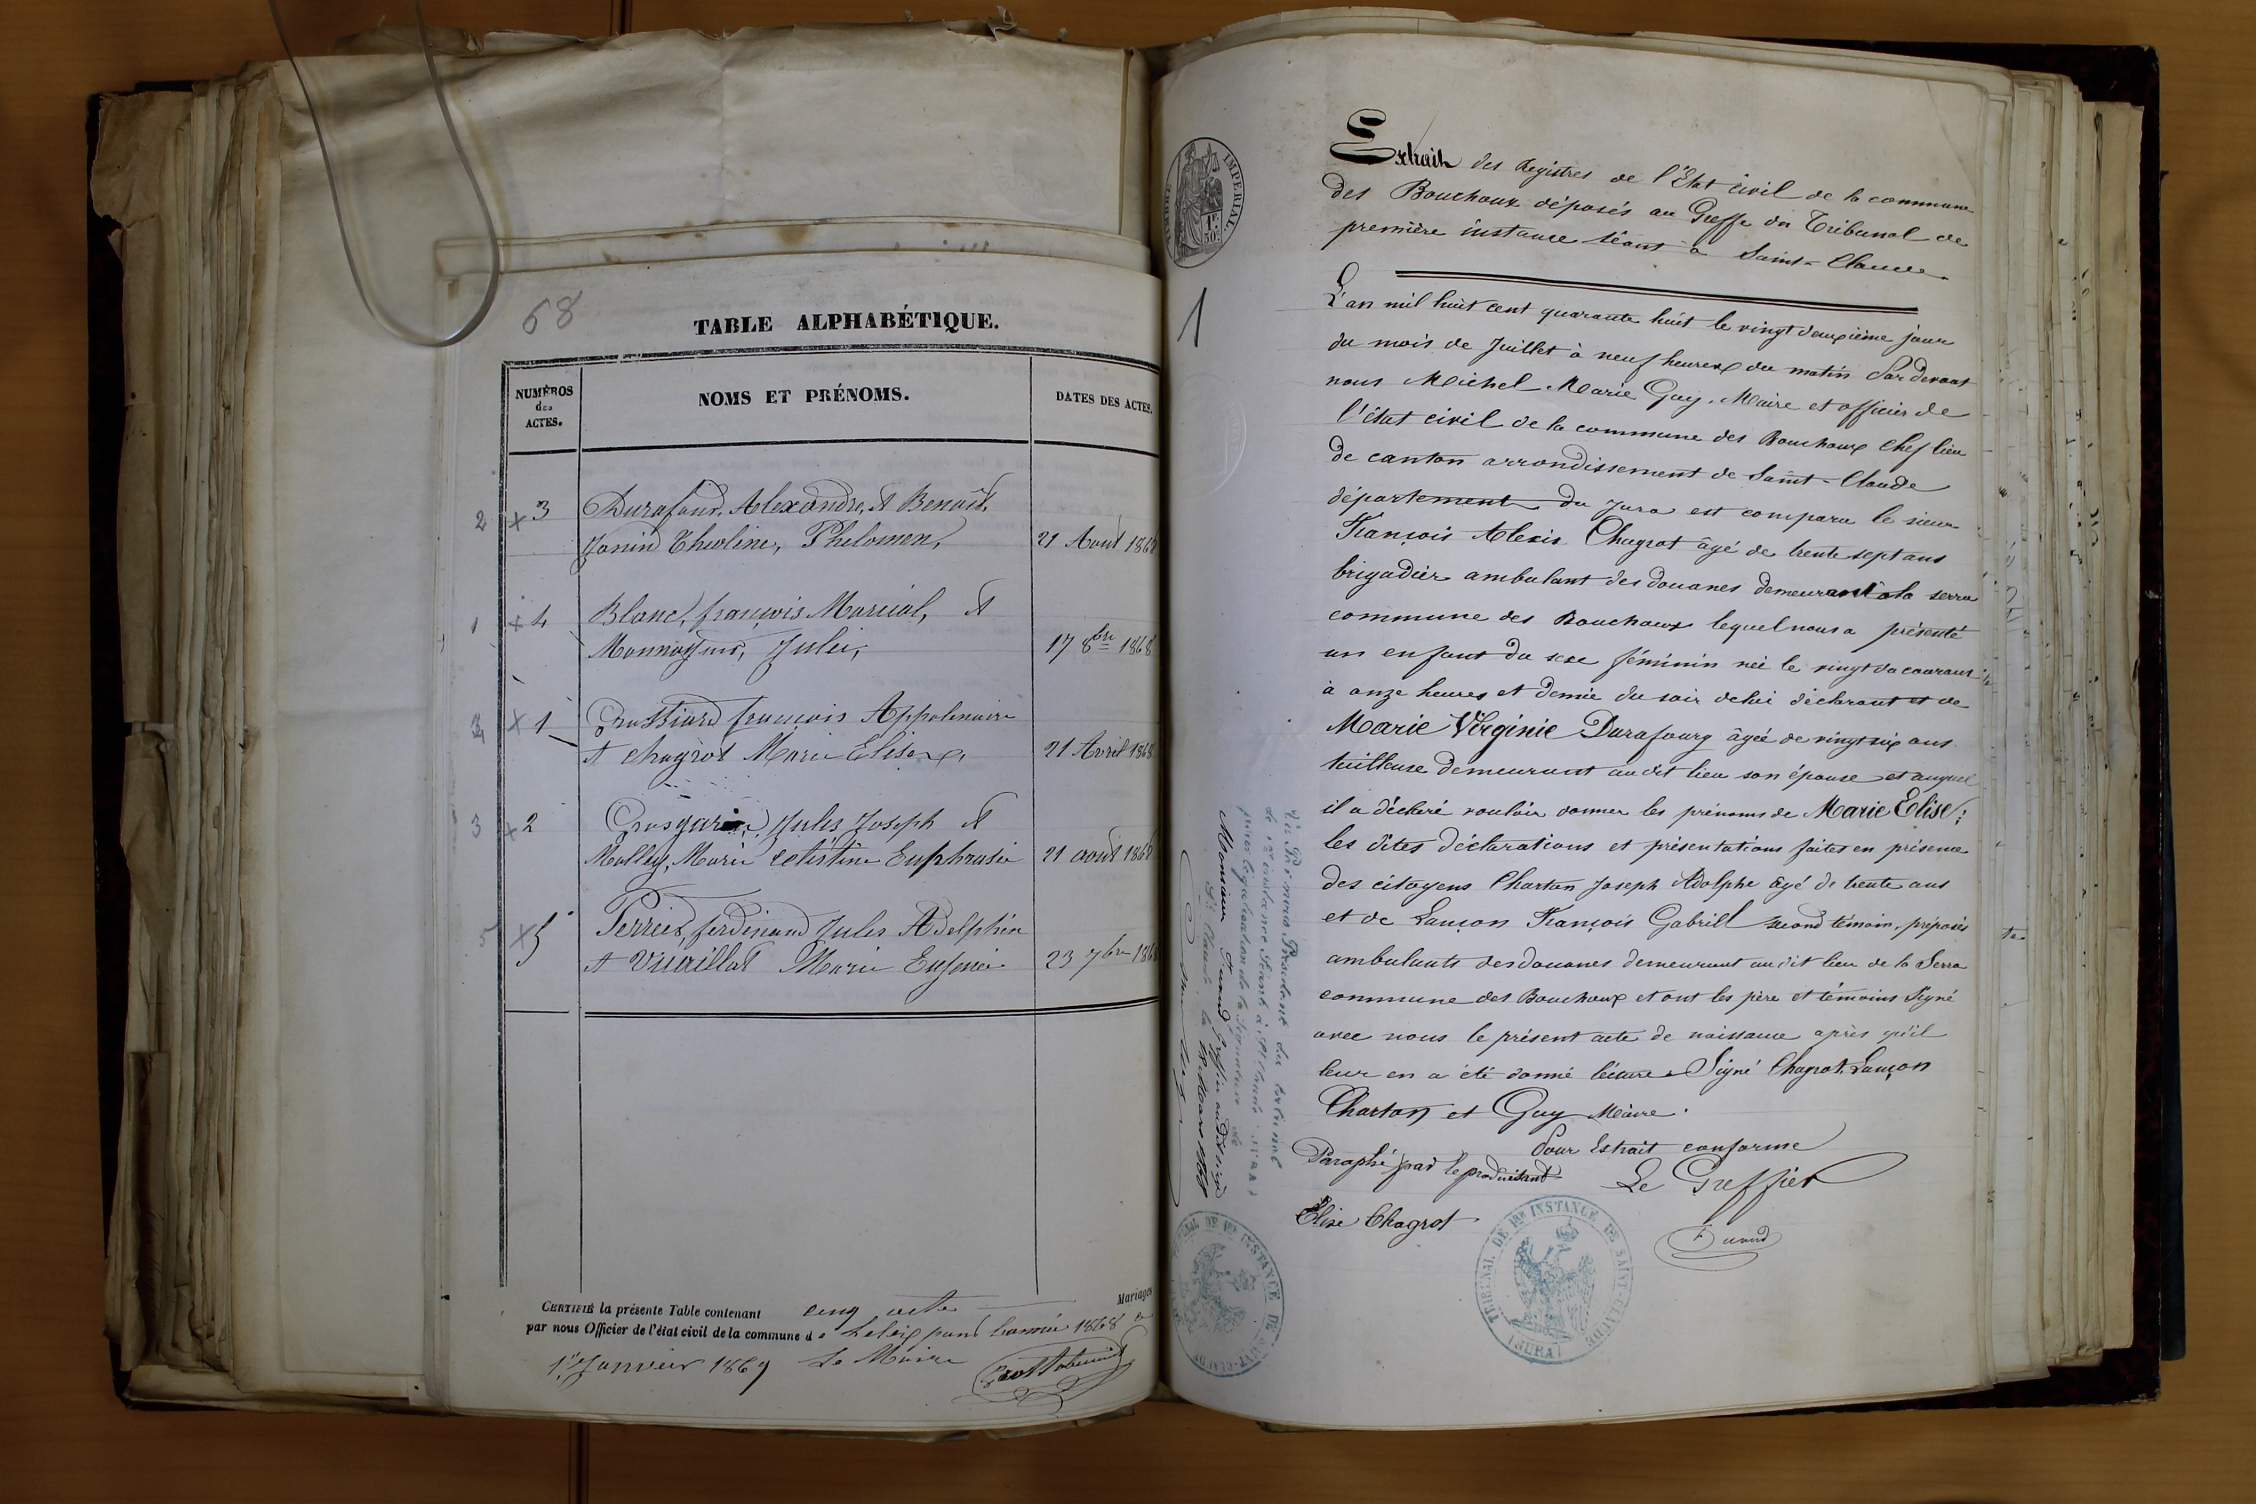 68
TABLE ALPHABÉTIQUE.
NUMÉROS
des
ACTES.
NOMS ET PRÉNOMS.
DATES DES ACTES.
2 x 3 Durafour, Alexandre, et Benoît,
Janin Théoline, Philomen, 21 Août 1868
1 x 4 Blanc, françois Marcial, et
Julie, 17 8bre 1868
x 1 Grossiard françois Appolinaire
et Chagrot Marie Elise, 21 Avril 1868
3 x 2 Grosgurin, Jules Joseph et
Mulley, Marie Celestine Euphrasie 21 août 1868
5 x 5 Perrier, ferdinand Jules Adelphin
et Vuaillat Marie Eugenie 23 7bre 1868
Mariages
CERTIFIÉ la présente Table contenant cinq actes
par nous Officier de l'état civil de la commune de Leleix pour l'année 1868 a
1er Janvier 1869 Le Maire
TIMBRE IMPERIAL
1F
50c
1
Extrait des Registres de l'Etat civil de la commune
des Bouchoux déposés au Greffe du Tribunal de
première instance séant à Saint-Claude.
L'an mil huit cent quarante huit le vingt deuxième jour
du mois de Juillet à neuf heures du matin Par devant
nous Michel Marie Guy, Maire et officier de
l'état civil de la commune des Bouchoux chef lieu
de canton arrondissement de Saint-Claude
département du Jura est comparu le sieur
François Alexis Chagrot âgé de trente sept ans
brigadier ambulant des douanes demeurant à la serra
commune des Bouchoux lequel nous a présenté
un enfant du sexe féminin née le vingt du courant
à onze heures et demie du soir de lui déclarant et de
Marie Virginie Durafourg âgée de vingt six ans
tailleuse demeurant au dit lieu son épouse et auquel
il a déclaré vouloir donner les prénoms de Marie Elise;
les dites déclarations et présentations faites en présence
des citoyens Charton Joseph Adolphe âgé de trente ans
et de Lançon François Gabriel second témoin, préposés
ambulants des douanes demeurant au dit lieu de la Serra
commune des Bouchoux et ont les père et témoins signé
avec nous le présent acte de naissance après qu'il
leur en a été donné lecture. Signé Chagrot, Lançon
Charton et Guy Maire.
Pour Extrait conforme
Paraphé par le produisant
Le Greffier
Elise Chagrot
Durand
TRIBUNAL DE 1ère INSTANCE DE SAINT-CLAUDE
(JURA)
Vu Par nous Président du tribunal
de 1ère instance Séant à St Claude (Jura)
pour légalisation de la signature de
Monsieur Durand Greffier au dit siège
St Claude, le Mars 1868
TRIBUNAL DE 1ère INSTANCE DE SAINT-CLAUDE